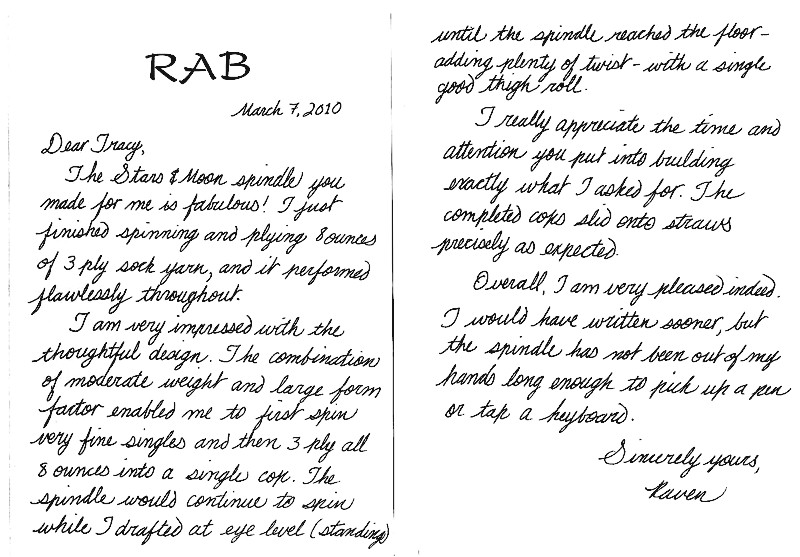 RAB
March 7, 2010
Dear Tracy,
The Stars & Moon spindle you
made for me is fabulous! I just
finished spinning and plying 8 ounces
of 3 ply sock yarn, and it performed
flawlessly throughout.
I am very impressed with the
thoughtful design. The combination
of moderate weight and large form
factor enabled me to first spin
very fine singles and then 3 ply all
8 ounces into a single cop. The
spindle would continue to spin
while I drafted at eye level (standing)
until the spindle reached the floor-
adding plenty of twist - with a single
good thigh roll.
I really appreciate the time and
attention you put into building
exactly what I asked for. The
completed cops slid onto straws
precisely as expected.
Overall, I am very pleased indeed.
I would have written sooner, but
the spindle has not been out of my
hands long enough to pick up a pen
or tap a keyboard.
Sincerely yours,
Raven